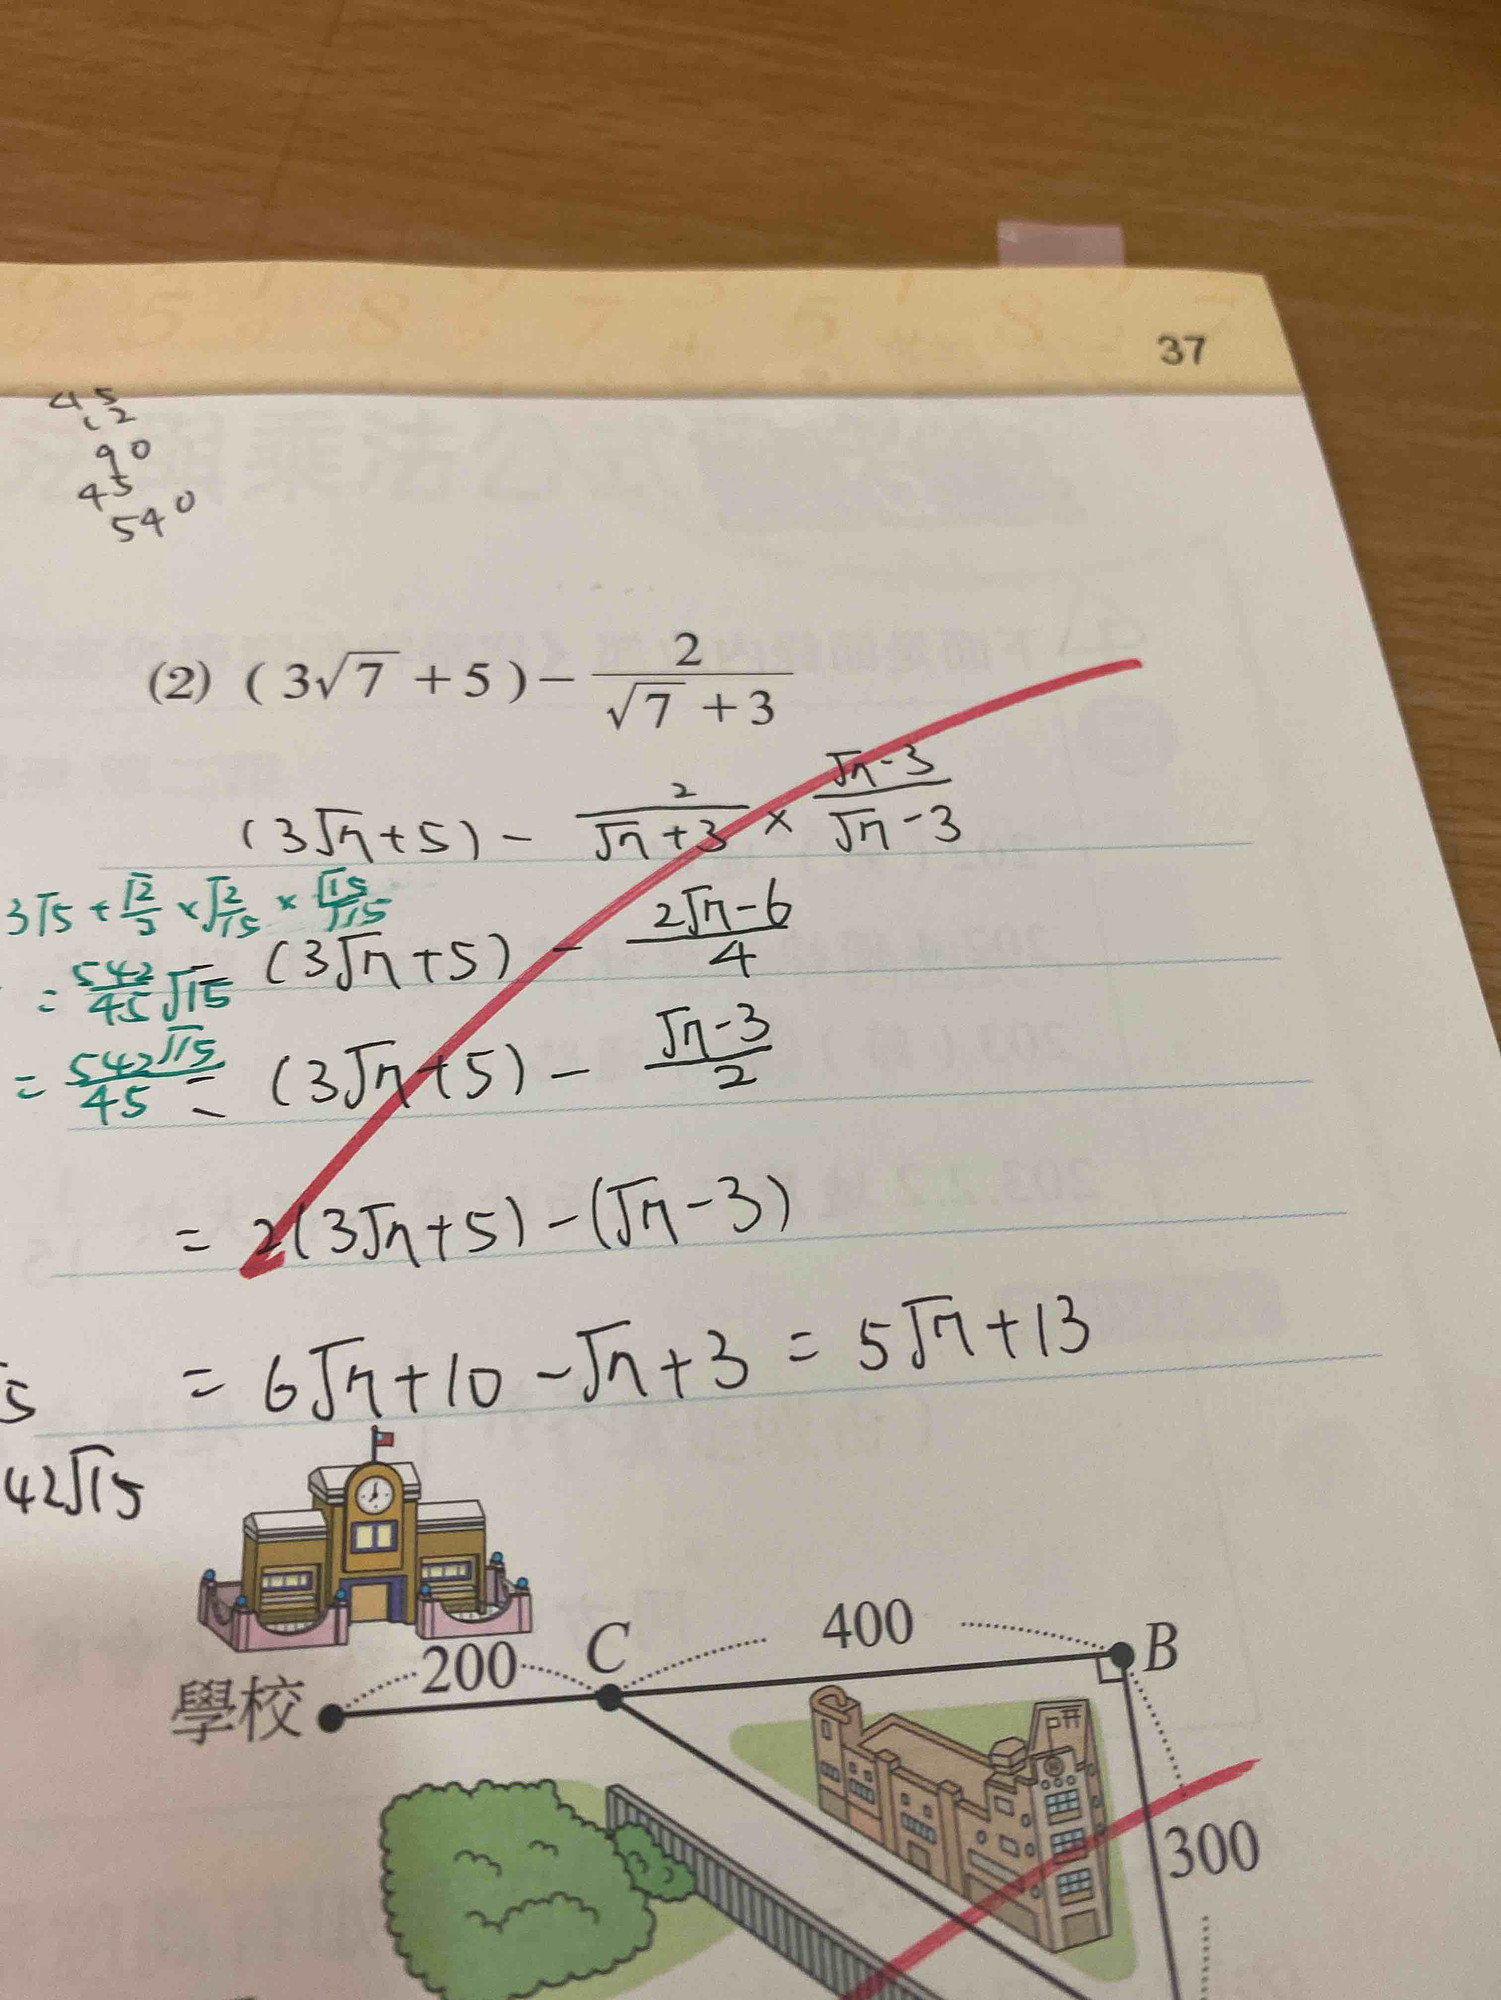 37
45
12
90
45
540
(2) (3√7 + 5) − 2/(√7 + 3)
(3√7+5) − 2/(√7+3) × (√7-3)/(√7-3)
3√5 + √2/3 × √2/√15 × √15/√15
= (3√7+5) − (2√7-6)/4
= 542/45 √15
= (3√7+5) − (√7-3)/2
= 542√15/45
= 2(3√7+5) − (√7-3)
= 6√7+10 − √7+3 = 5√7+13
5
42√15
學校
200
C
400
B
300